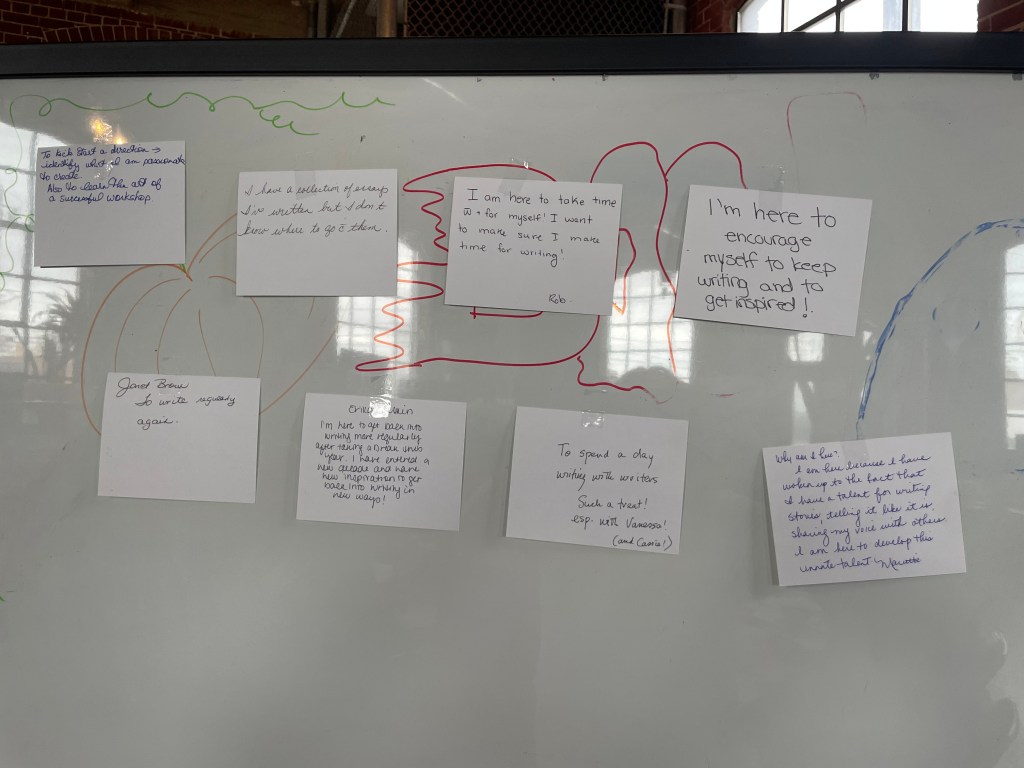 To kick start a direction →
identify what I am passionate
to create.
Also to learn the art of
a successful workshop.
I have a collection of essays
I've written but I don't
know where to go c̄ them.
I am here to take time
+ for myself! I want
to make sure I make
time for writing!
Rob
I'm here to
encourage
myself to keep
writing and to
get inspired!
Janet
To write regularly
again.
I'm here to get back into
writing more regularly
after taking a break this
year. I have entered a
new decade and have
new inspiration to get
back into writing in
new ways!
To spend a day
writing with writers
Such a treat!
esp. with Vanessa!
(and Cassie!)
Why am I here?
I am here because I have
woken up to the fact that
I have a talent for writing
stories, telling it like it is,
sharing my voice with others.
I am here to develop this
innate talent